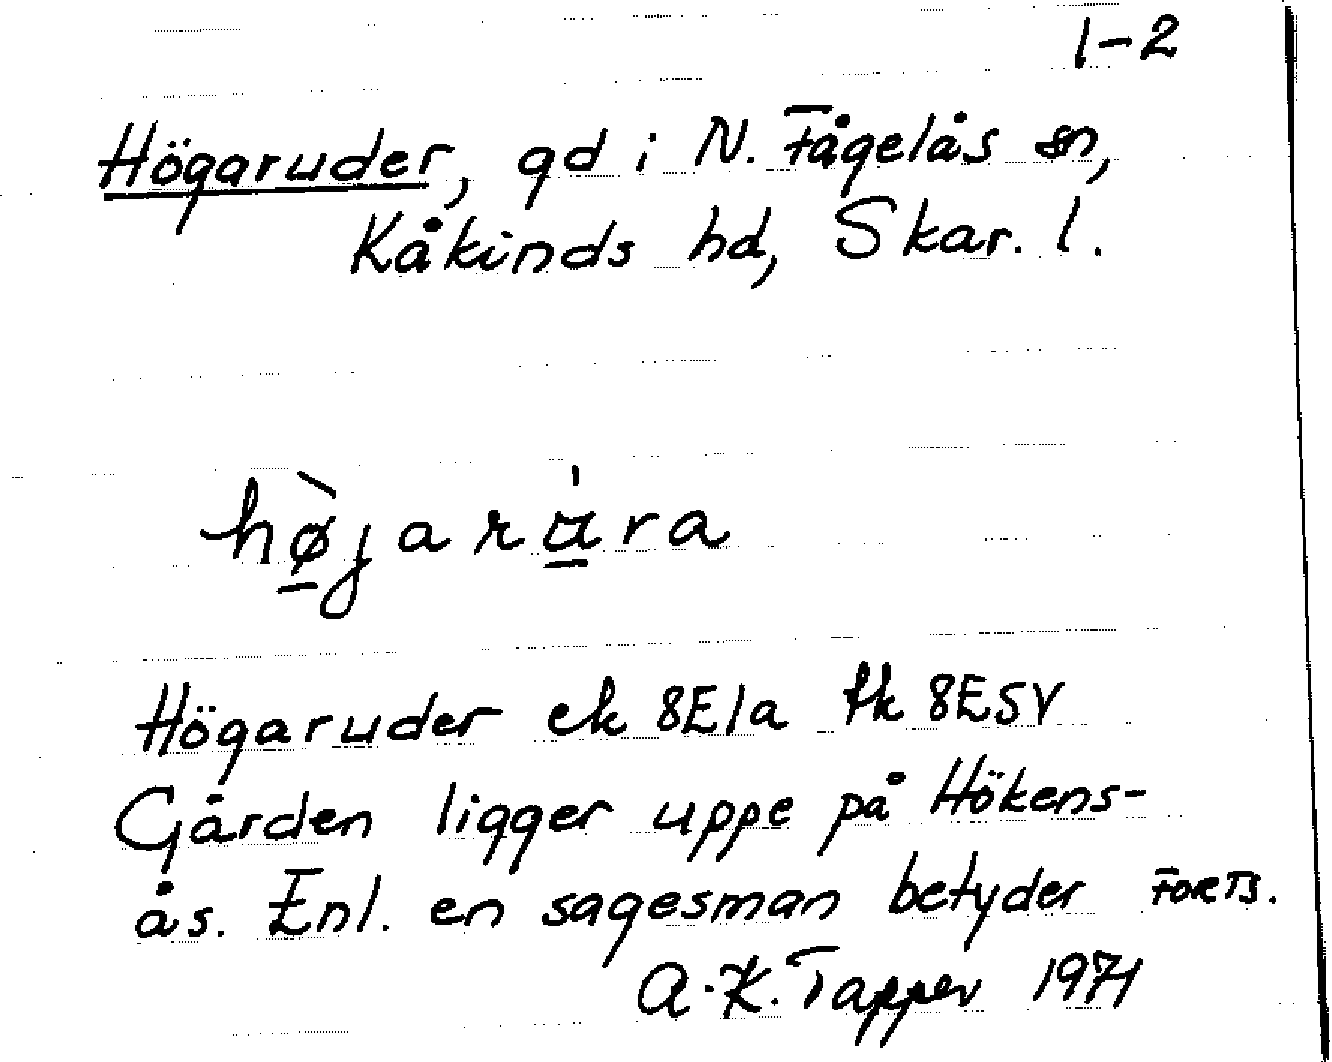 1-2
Högaruder, gd i N. Fågelås sn,
Kåkinds hd, Skar. l.
hø̀jarʉ̍ra
Högaruder ek 8E1a fk 8E5V
Gården ligger uppe på Hökens-
ås. Enl. en sagesman betyder FORTS.
A.K. Tapper 1971